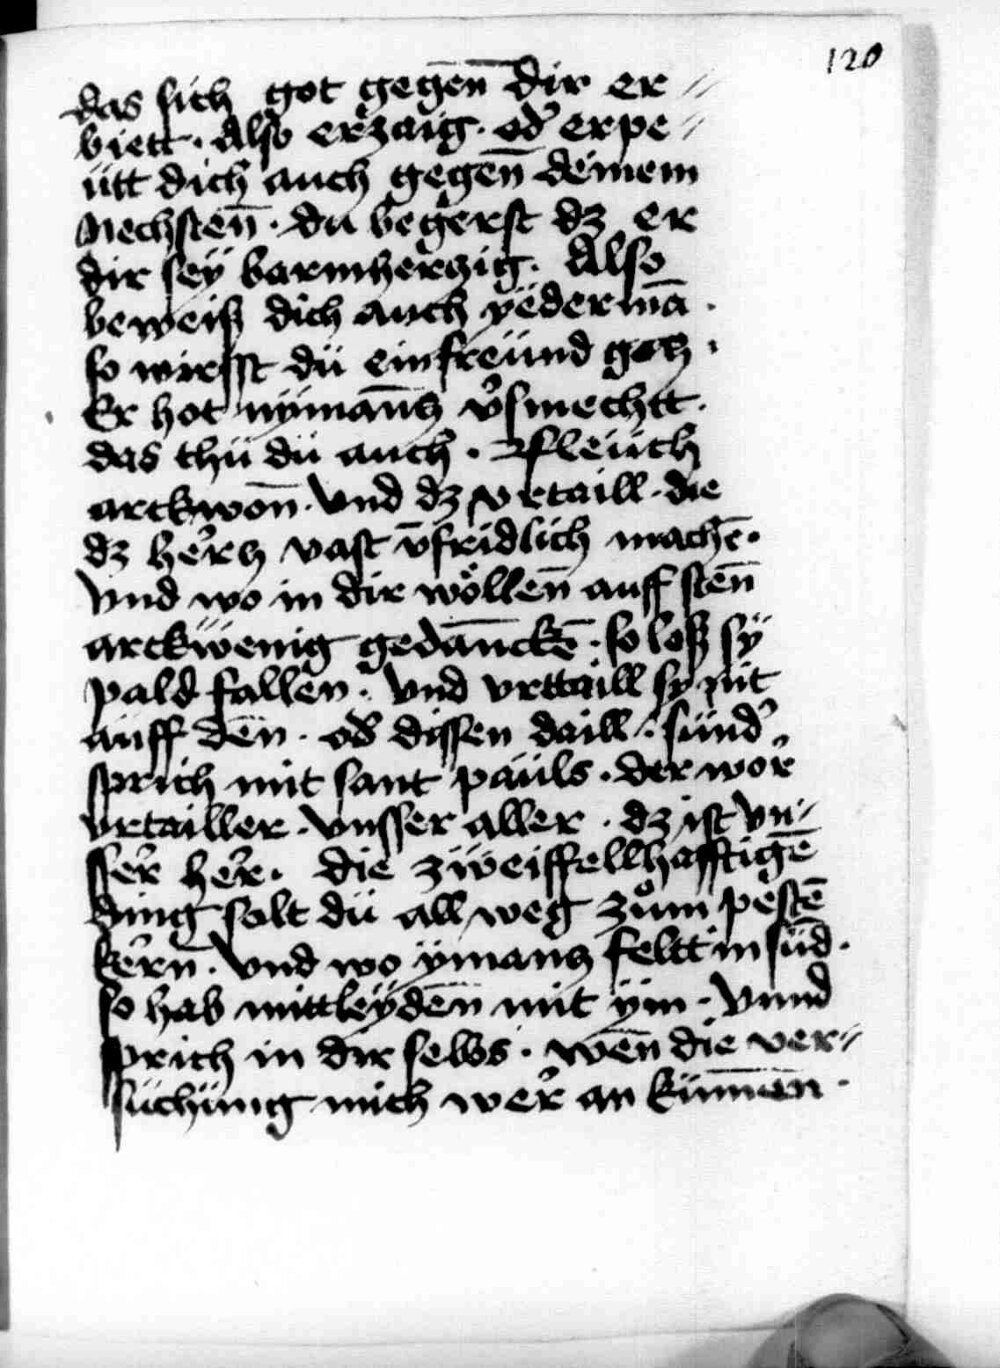 120
das sich got gegen̄ dir er〃
biett · Also erzaig · od̓ erpe〃
ütt dich auch gegen̄ deinem
nechsten̄ · du begerst dz er
dir seÿ barmherczig · Also
beweiß dich auch yederma̅ ·
so wirsst dü ein freünd gotz ·
Er hot nÿman̄tz v̓smechtt ·
das thü dü auch · Fleüch
arckwon̄ · vnd dz vrtaill · die
dz hercz vast v̄fridlich mache̅ ·
Vnd wo in dir wöllen̄ auff sten̄
arckwenig geda̅ncke̅ · so loß sÿ
pald fallen · vnd vrttaill sy nit
auff den · od̓ dissen daill · sünd̓
sprich mit sant pauls · der wor̓
vrtailler · vnsser aller · dz ist vn〃
sser̓ her̓ · die zweiffellhafftige̅
ding solt dü all weg zům peste̅
kern̄ · vnd wo ymantz feltt in sü̅d ·
so hab mittleyden̄ mit ÿm · vnnd
sprich in dir selbs · wen̄ die ver〃
süchüng mich wer̓ an kümen̄ ·